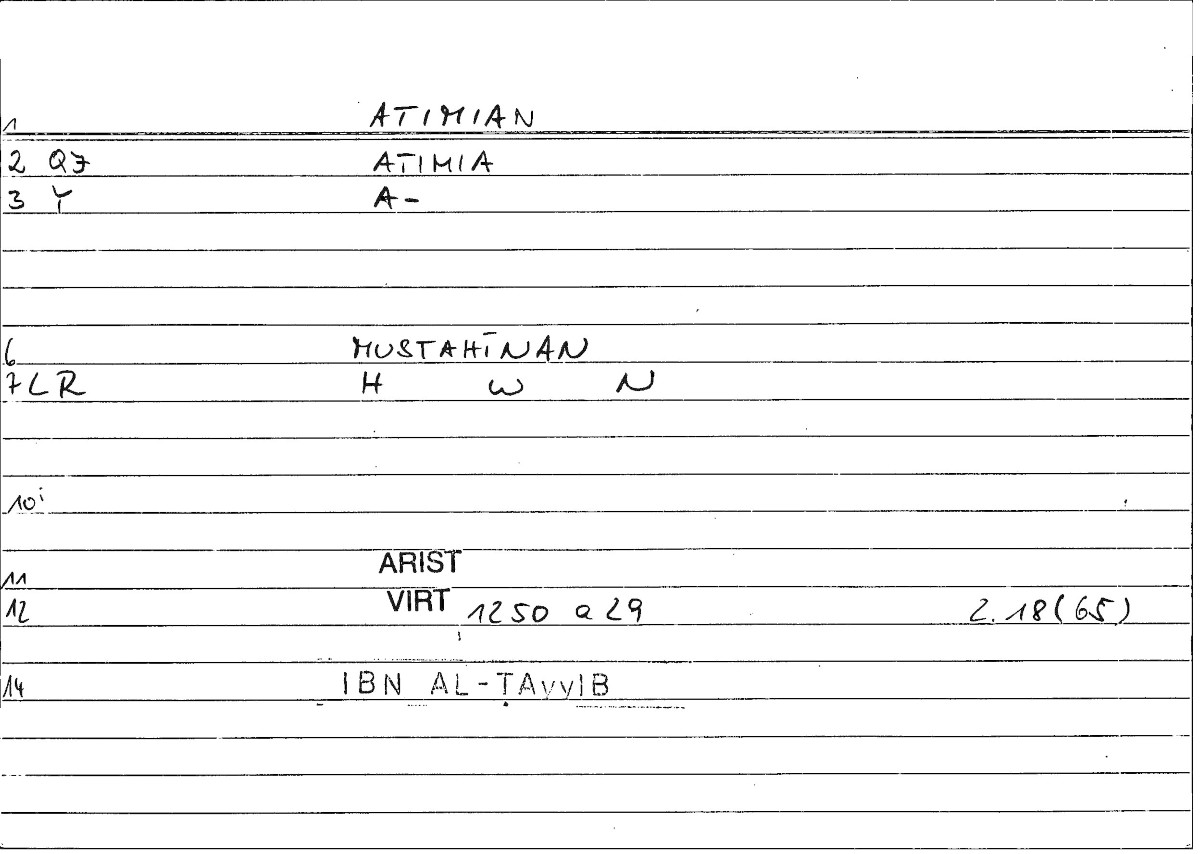 1 ATIMIAN
2 QF ATIMIA
3 Y A-
6 MUSTAHĪNAN
7 LR H W N
10i
11 ARIST
12 VIRT 1250 a 29 2.18(65)
14 IBN AL-ṬAyyIB